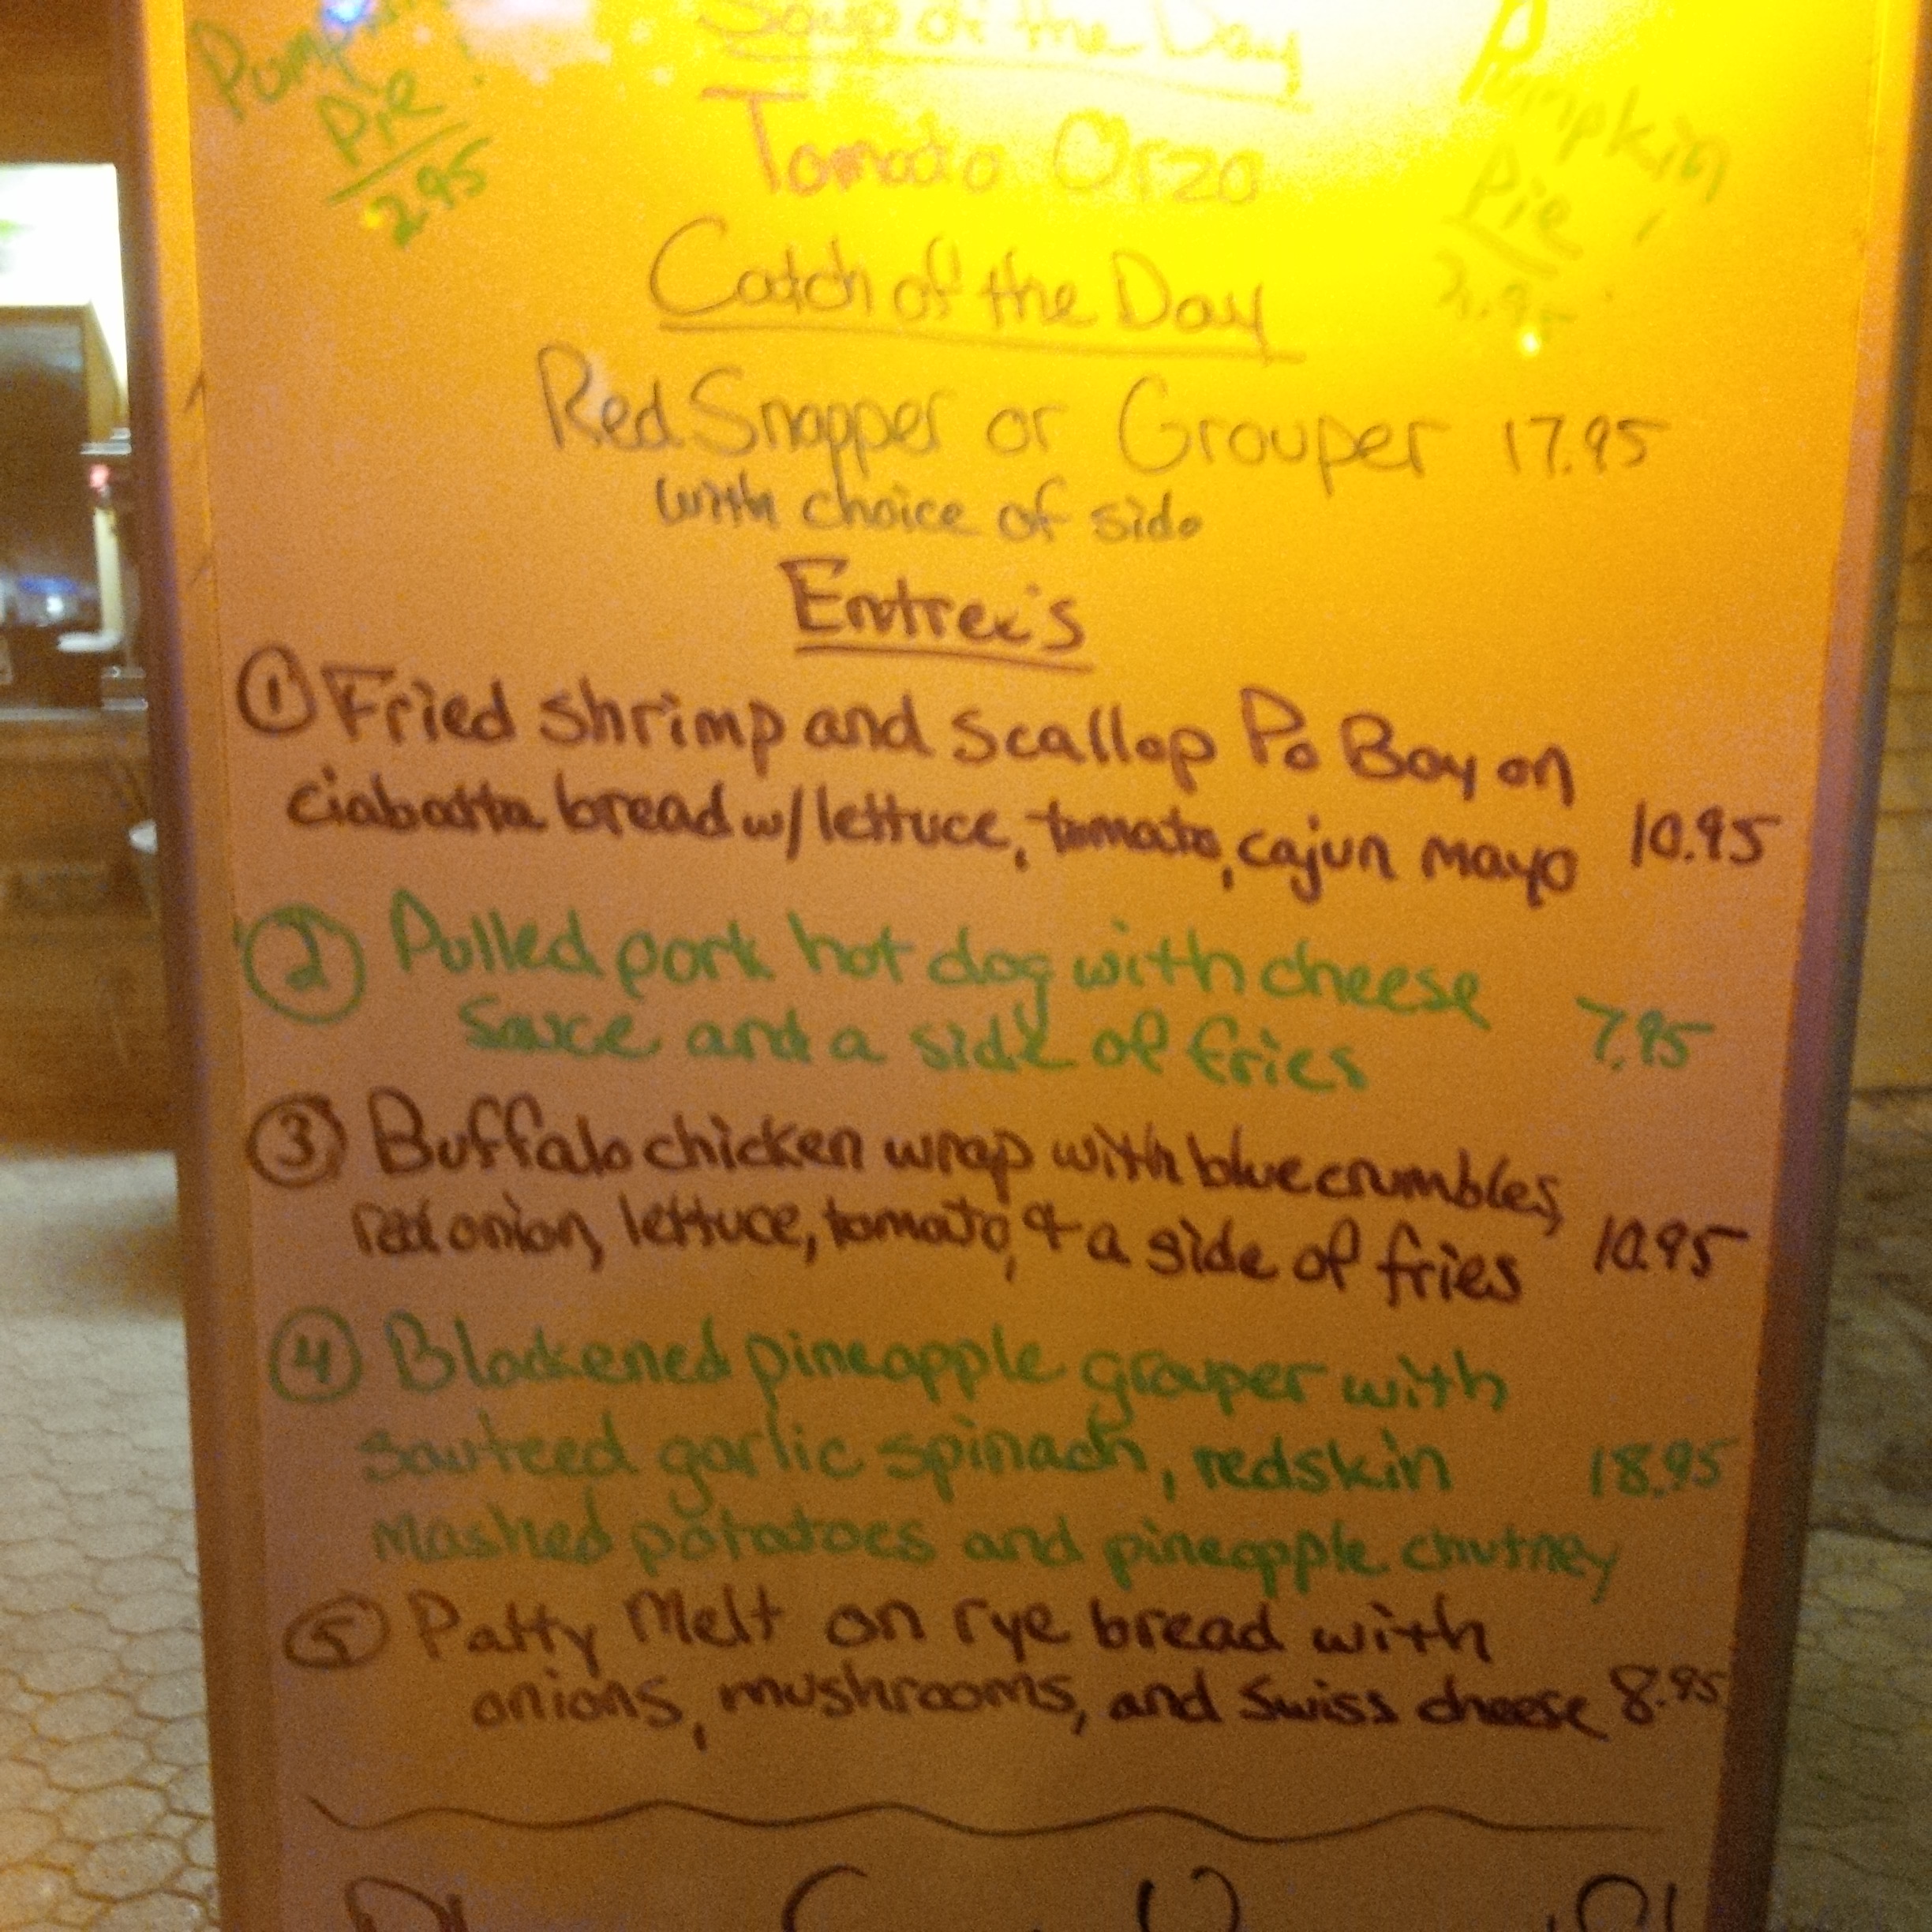 Soup of the Day
Pumpkin
Pie!
2.95
Pumpkin
Pie!
2.95
Tomato Orzo
Catch of the Day
Red Snapper or Grouper 17.95
with choice of side
Entree's
1 Fried shrimp and scallop Po Boy on
ciabatta bread w/ lettuce, tomato, cajun mayo 10.95
2 Pulled pork hot dog with cheese
sauce and a side of fries 7.95
3 Buffalo chicken wrap with blue crumbles,
red onion, lettuce, tomato, & a side of fries 10.95
4 Blackened pineapple grouper with
sauteed garlic spinach, redskin 18.95
mashed potatoes and pineapple chutney
5 Patty Melt on rye bread with
onions, mushrooms, and swiss cheese 8.95